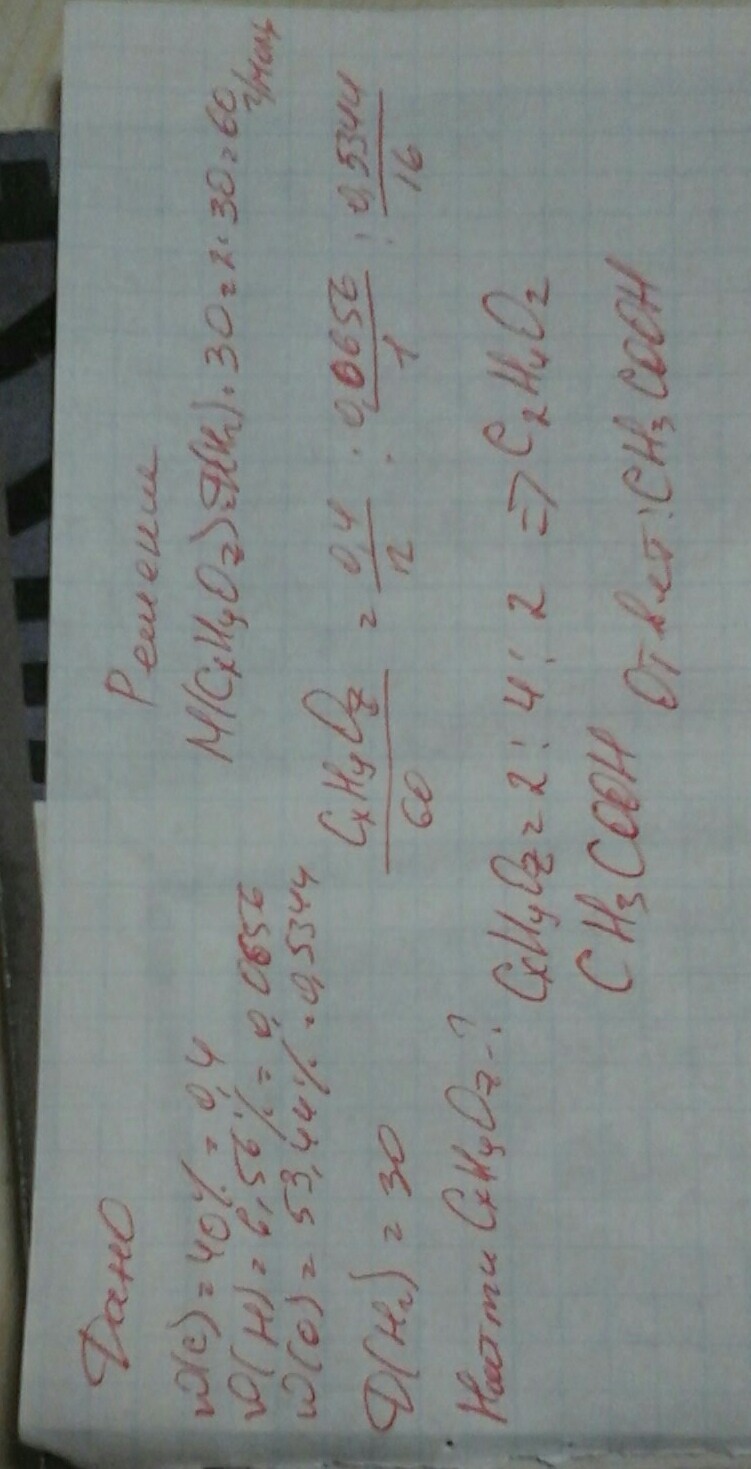 Дано
W(C) = 40% = 0,4
W(H) = 6,56% = 0,0656
W(O) = 53,44% = 0,5344
D(H₂) = 30
Найти CxHyOz - ?
Решение
M(CxHyOz) = D(H₂) · 30 = 2 · 30 = 60 г/моль
CxHyOz/60 = 0,4/12 : 0,0656/1 : 0,5344/16
CxHyOz = 2 : 4 : 2 => C₂H₄O₂
CH₃COOH Ответ: CH₃COOH